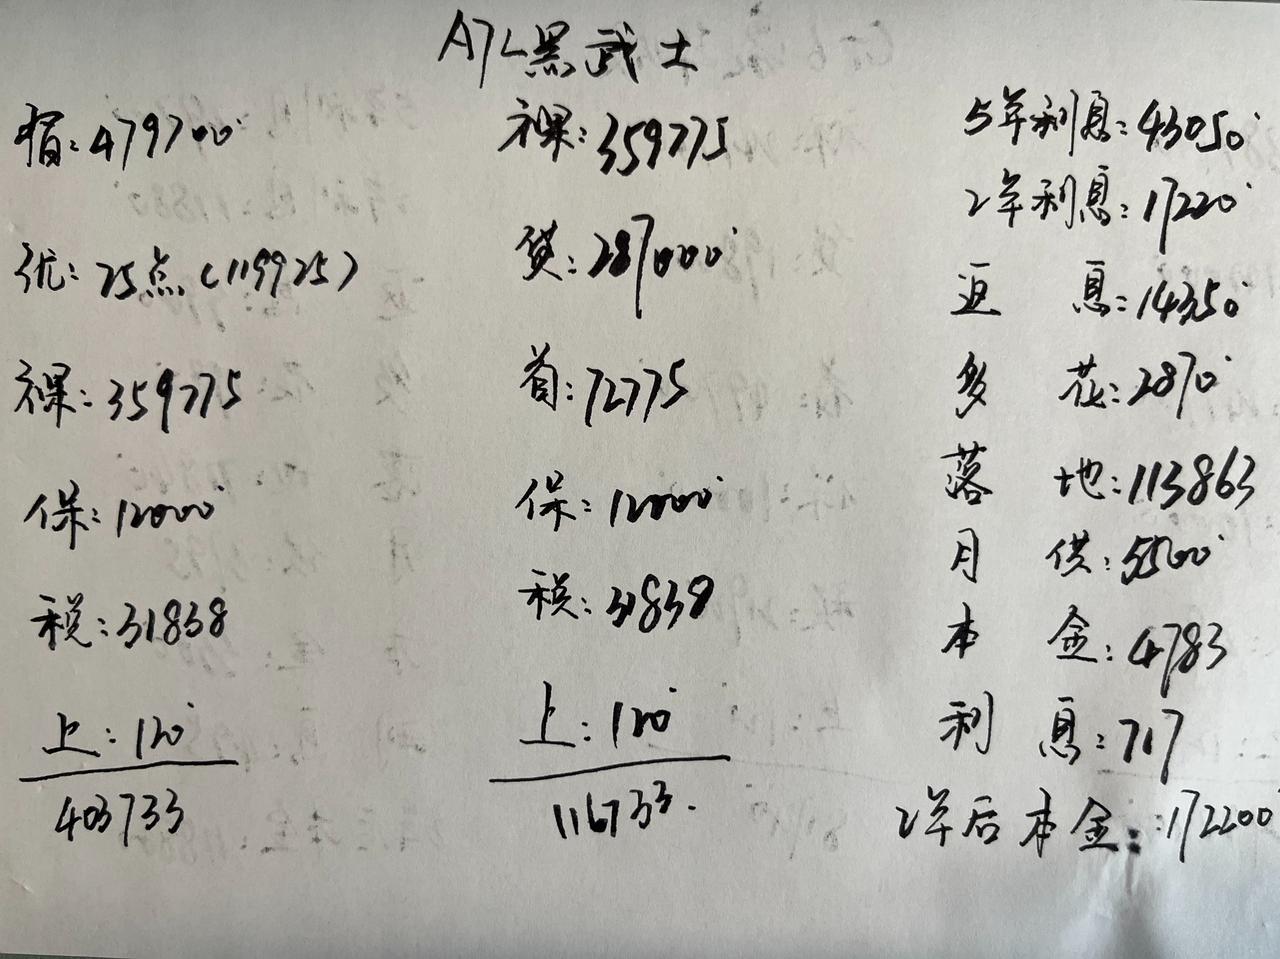 A7L黑武士
指:479700
优:25点(119925)
裸:359775
保:12000
税:31838
上:120
403733
裸:359775
贷:287000
首:72775
保:12000
税:31838
上:120
116733.
5年利息:43050
2年利息:17220
返 息:14350
多 花:2870
落 地:113863
月 供:5500
本 金:4783
利 息:717
2年后本金:172200